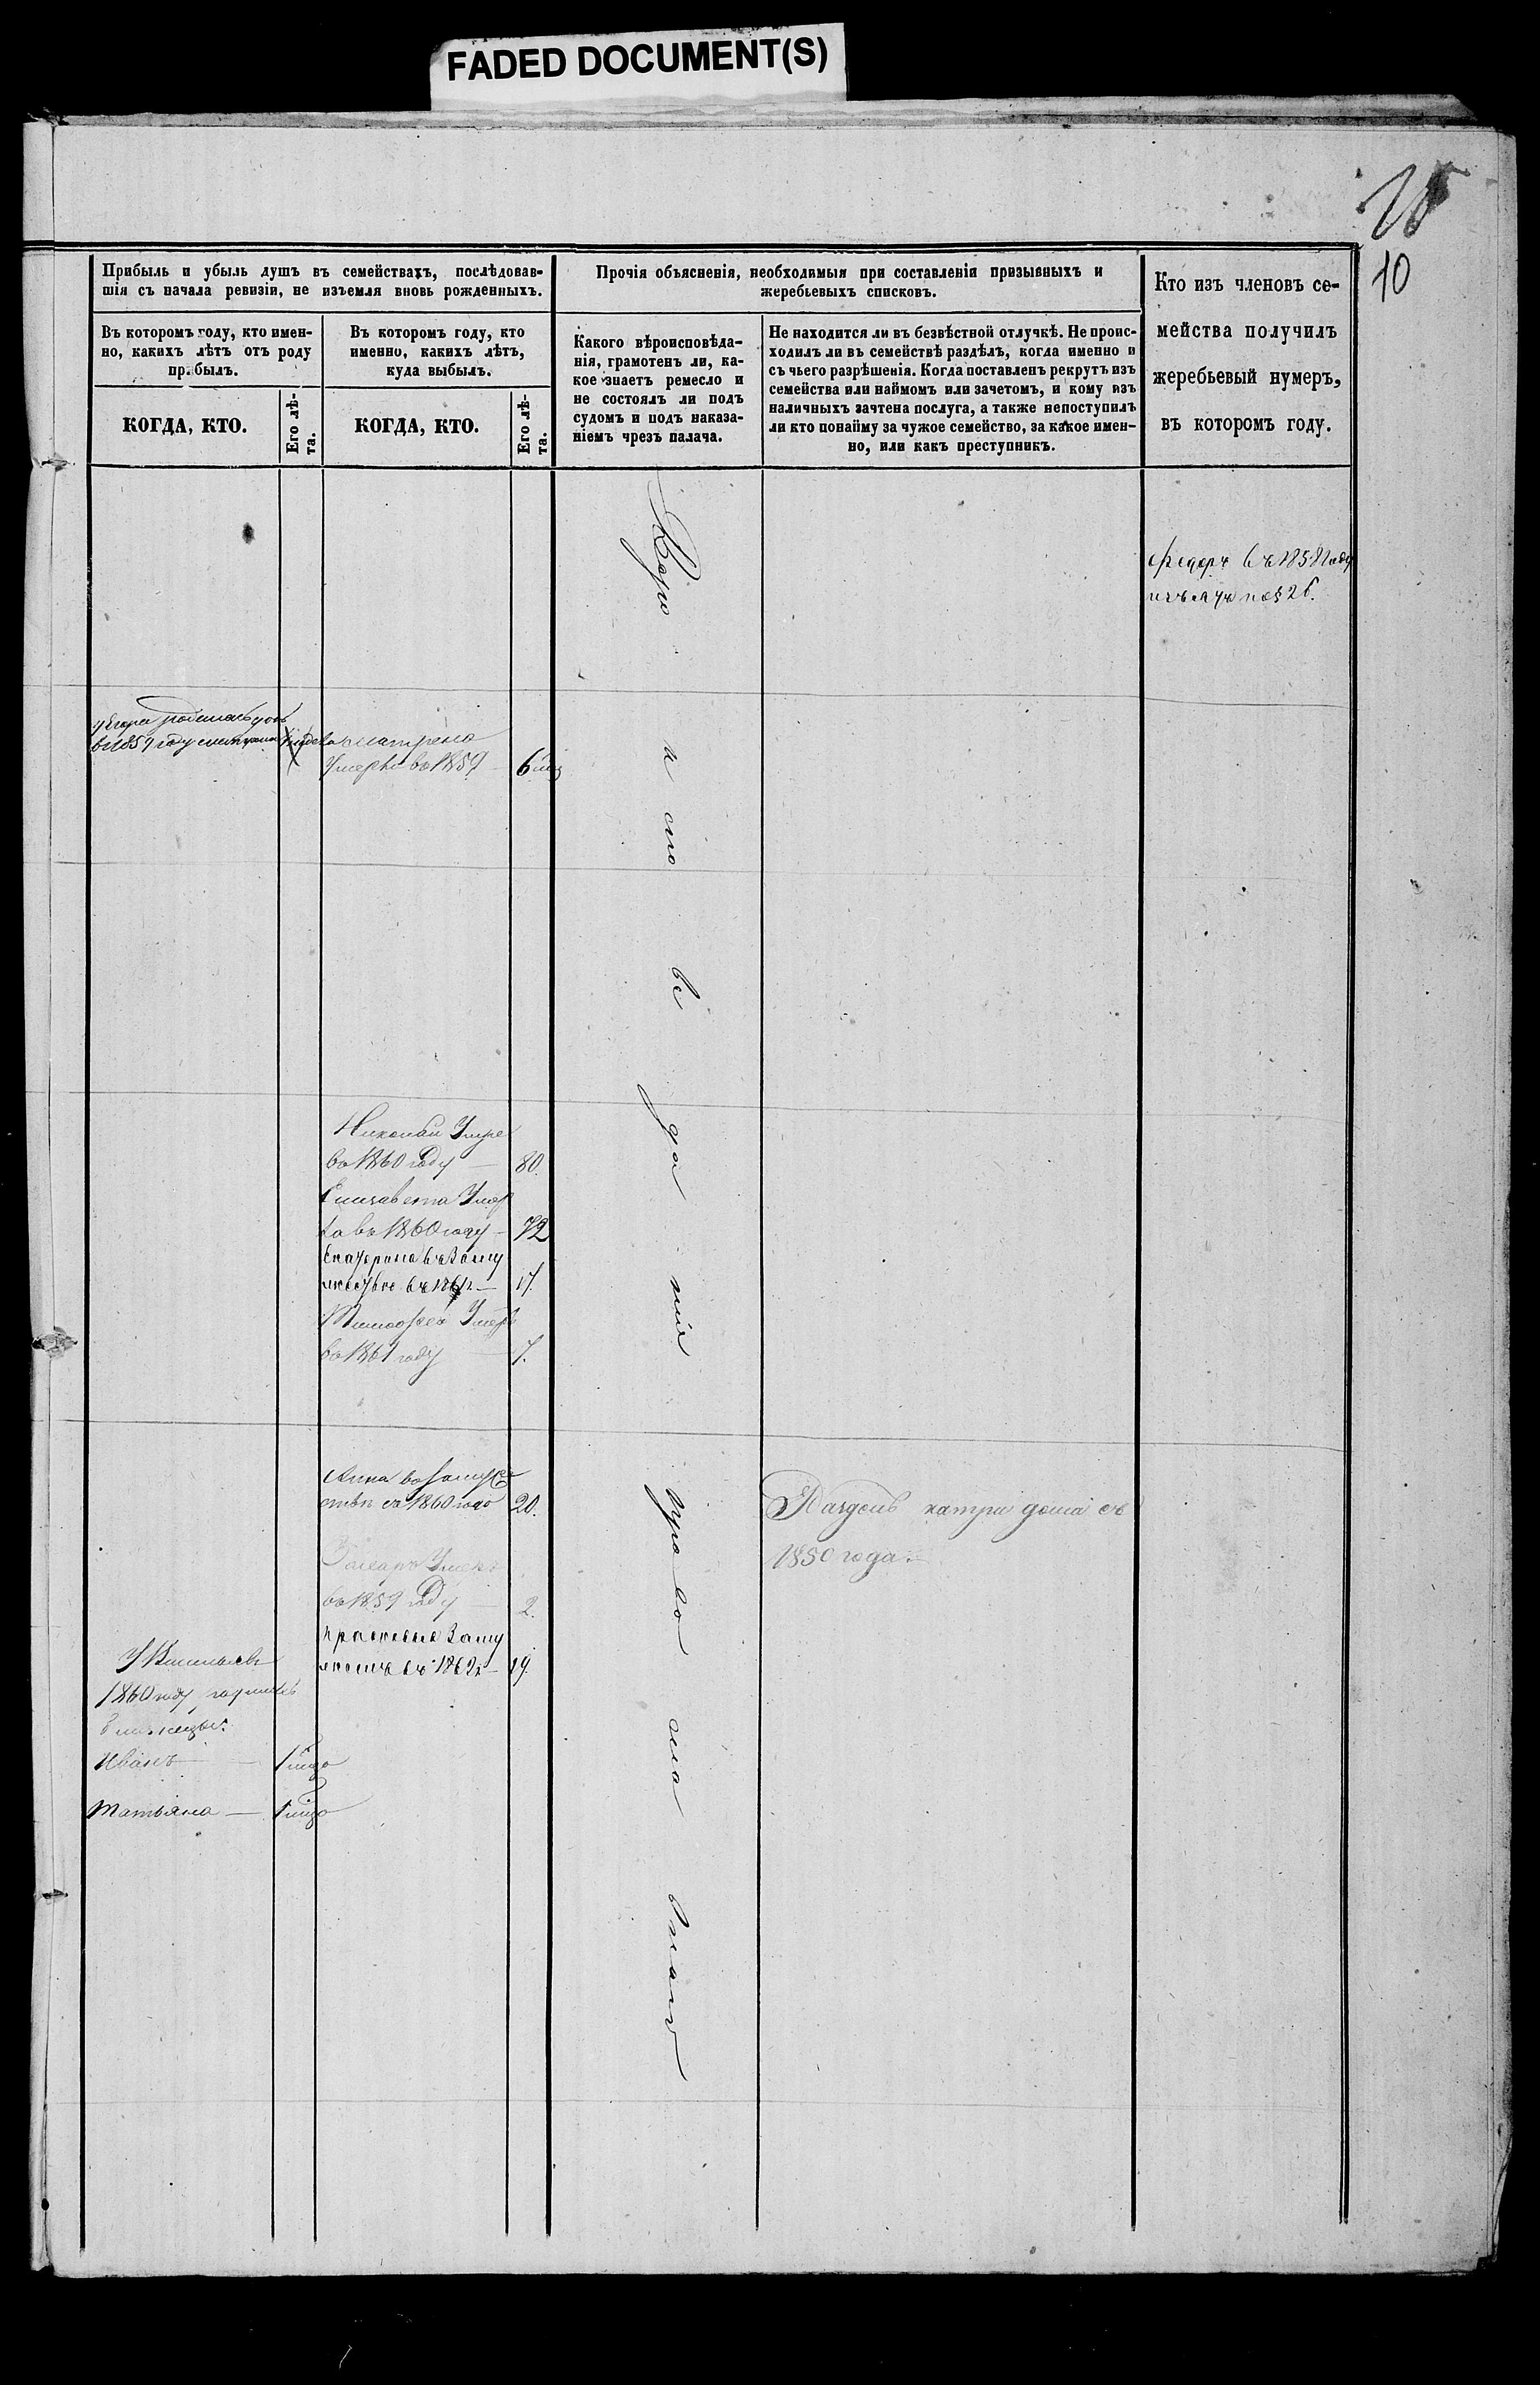 FADED DOCUMENT(S)
10
Прибыль и убыль душъ въ семействахъ, послѣдовав-
шія съ начала ревизіи, не изъемля вновь рожденныхъ.
Прочія объясненія, необходимыя при составленіи призывныхъ и
жеребьевыхъ списковъ.
Кто изъ членовъ се-
мейства получилъ
жеребьевый нумеръ,
въ которомъ году.
Въ которомъ году, кто имен-
но, какихъ лѣтъ отъ роду
прибылъ.
Въ которомъ году, кто
именно, какихъ лѣтъ,
куда выбылъ.
Какого вѣроисповѣда-
нія, грамотенъ ли, ка-
кое знаетъ ремесло и
не состоялъ ли подъ
судомъ и подъ наказа-
ніемъ чрезъ палача.
Не находится ли въ безвѣстной отлучкѣ. Не проис-
ходилъ ли въ семействѣ раздѣлъ, когда именно и
съ чьего разрѣшенія. Когда поставленъ рекрутъ изъ
семейства или наймомъ или зачетомъ, и кому изъ
наличныхъ зачтена послуга, а также непоступилъ
ли кто понайму за чужое семейство, за какое имен-
но, или какъ преступникъ.
КОГДА, КТО.
Его лѣ-
та.
КОГДА, КТО.
Его лѣ-
та.
Федоръ въ 1858 году
изъятъ по § 26.
у Егора родилась дочь
въ 1859 году матрена
матрена
Умерла въ 1859 6
Николай Умре
въ 1860 году — 80.
Елизавета Умер
ла въ 1860 году — 72
Екатерина въ Заму
жествѣ въ 186 г. — 17.
Тимофей Умеръ
въ 1861 году — 7.
Анна въ Замуже
ствѣ съ 1860 года 20.
Раздѣлъ на три дома съ
1850 года.
Захаръ Умеръ
въ 1859 году — 2.
Прасковья Заму
жемъ въ 1862 г — 19.
У Василья въ
1860 году родились
близнецы:
Иванъ —
Татьяна —